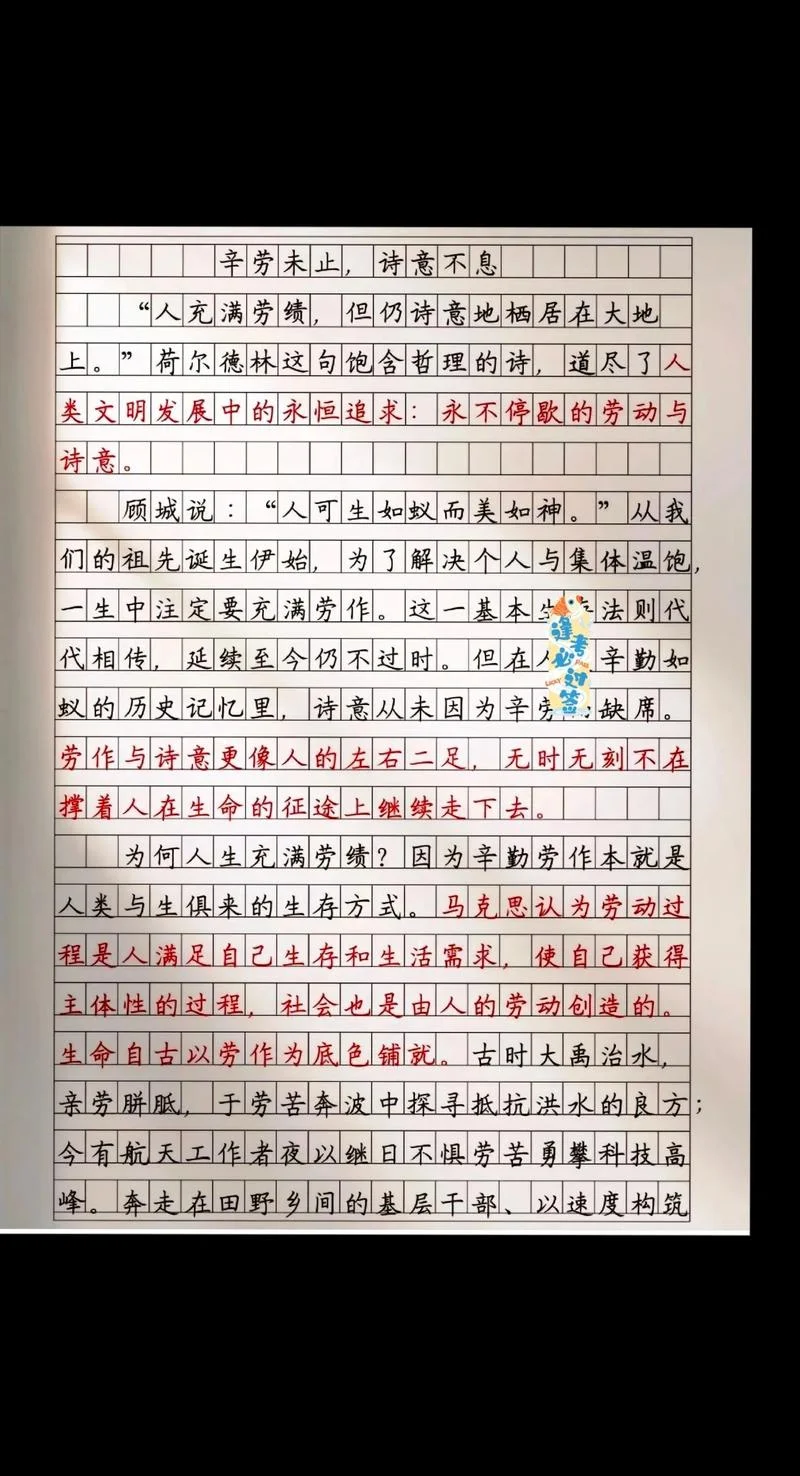 辛劳未止，诗意不息
“人充满劳绩，但仍诗意地栖居在大地
上。”荷尔德林这句饱含哲理的诗，道尽了人
类文明发展中的永恒追求：永不停歇的劳动与
诗意。
顾城说：“人可生如蚁而美如神。”从我
们的祖先诞生伊始，为了解决个人与集体温饱，
一生中注定要充满劳作。这一基本生法则代
代相传，延续至今仍不过时。但在人辛勤如
蚁的历史记忆里，诗意从未因为辛劳缺席。
劳作与诗意更像人的左右二足，无时无刻不在
撑着人在生命的征途上继续走下去。
为何人生充满劳绩？因为辛勤劳作本就是
人类与生俱来的生存方式。马克思认为劳动过
程是人满足自己生存和生活需求，使自己获得
主体性的过程，社会也是由人的劳动创造的。
生命自古以劳作为底色铺就。古时大禹治水，
亲劳胼胝，于劳苦奔波中探寻抵抗洪水的良方；
今有航天工作者夜以继日不惧劳苦勇攀科技高
峰。奔走在田野乡间的基层干部、以速度构筑
逢考必过签
LUCKY
PASS